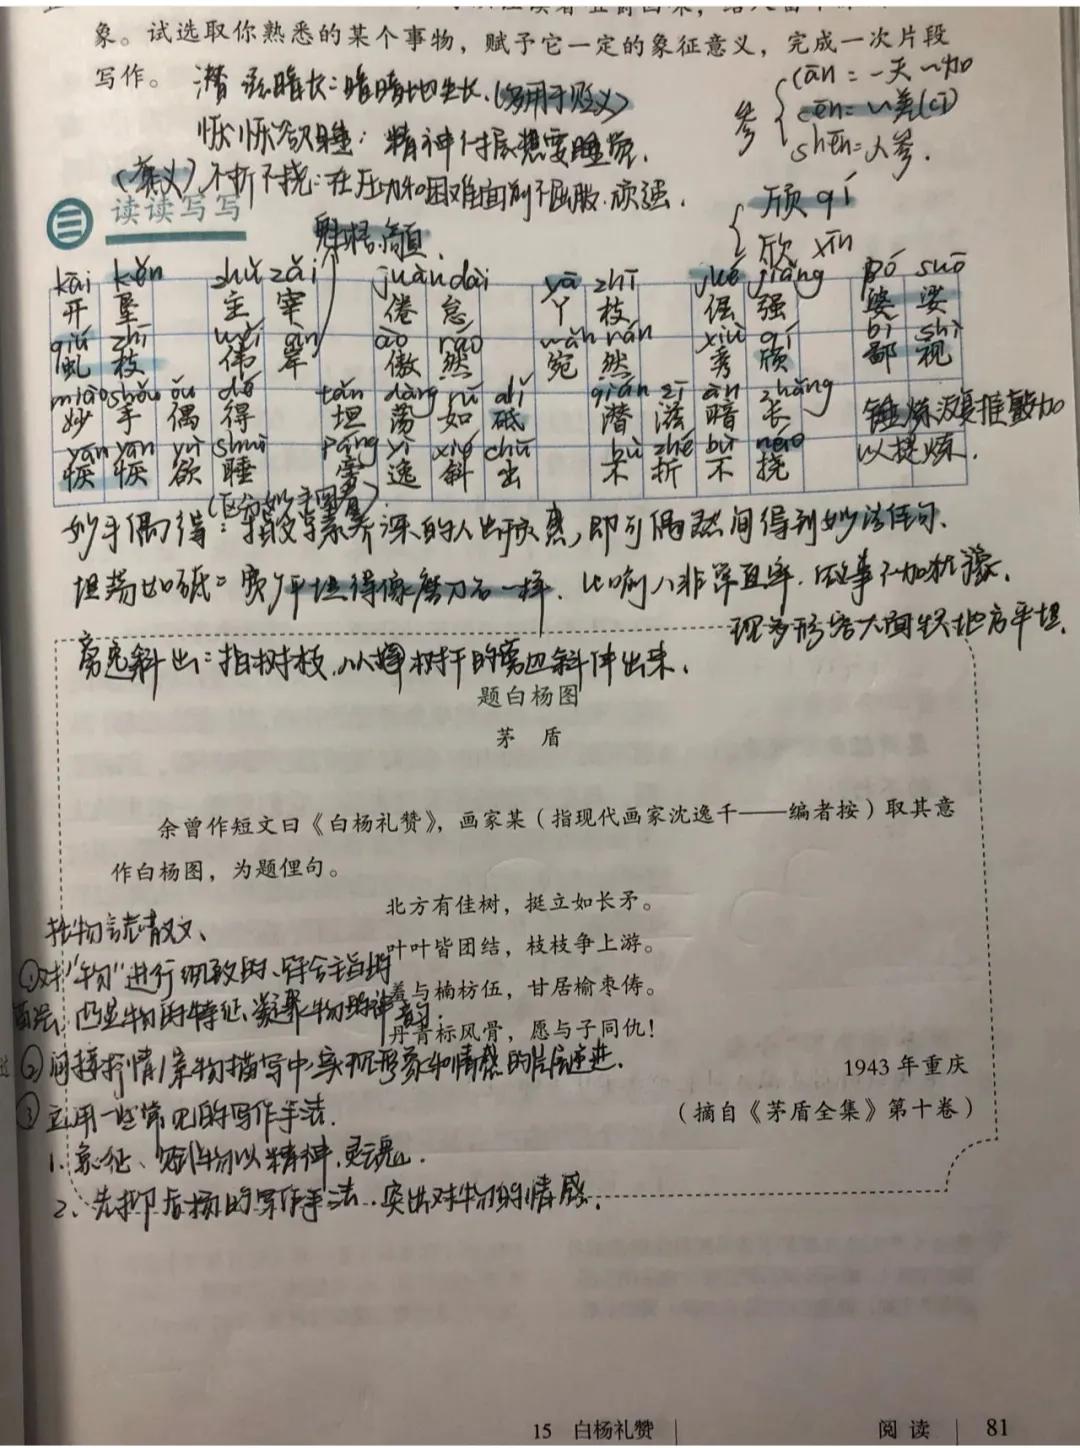 象。试选取你熟悉的某个事物，赋予它一定的象征意义，完成一次片段
写作。
潜滋暗长：暗暗地生长.(多用于贬义)
参
cān = 一天～加
cēn = ～差(cī)
shēn = 人参.
恹恹欲睡：精神 想要睡觉.
(褒义)不折不挠：在压力和困难面前不屈服.顽强.
三 读读写写
魁梧.高直.
颀 qí
欣 xīn
kāi kěn zhǔ zǎi juàn dài yā zhī jué jiàng pó suō
开 垦 主 宰 倦 怠 丫 枝 倔 强 婆 娑
qiú zhī wěi àn ào rán wǎn rán xiù qí bǐ shì
虬 枝 伟 岸 傲 然 宛 然 秀 颀 鄙 视
miào shǒu ǒu dé tǎn dàng rú dǐ qián zī àn zhǎng
妙 手 偶 得 坦 荡 如 砥 潜 滋 暗 长
锤炼：反复推敲加
yān yān yù shuì páng yì xié chū bù zhé bù náo
恹 恹 欲 睡 旁 逸 斜 出 不 折 不 挠
以提炼.
(区分妙手回春)
妙手偶得：指文学素养深的人出于灵感,即可偶然间得到妙语佳句.
坦荡如砥：宽广平坦得像磨刀石一样.比喻人非常直率.做事不加犹豫.
现多形容大面积地方平坦.
旁逸斜出：指树枝.从 树干的旁边斜伸出来.
题白杨图
茅 盾
余曾作短文曰《白杨礼赞》，画家某（指现代画家沈逸千——编者按）取其意
作白杨图，为题俚句。
北方有佳树，挺立如长矛。
叶叶皆团结，枝枝争上游。
羞与楠枋伍，甘居榆枣俦。
丹青标风骨，愿与子同仇！
1943 年重庆
（摘自《茅盾全集》第十卷）
托物言志散文、
①对"物"进行细致的、符合主旨的
描绘,凸显物的特征、凝聚物的神韵.
②间接抒情/景物描写中实现形象和情感的层层递进.
③运用一些常见的写作手法.
1、象征、赋予物以精神.灵魂.
2、先抑后扬的写作手法.突出对物的情感.
15 白杨礼赞 | 阅 读 | 81